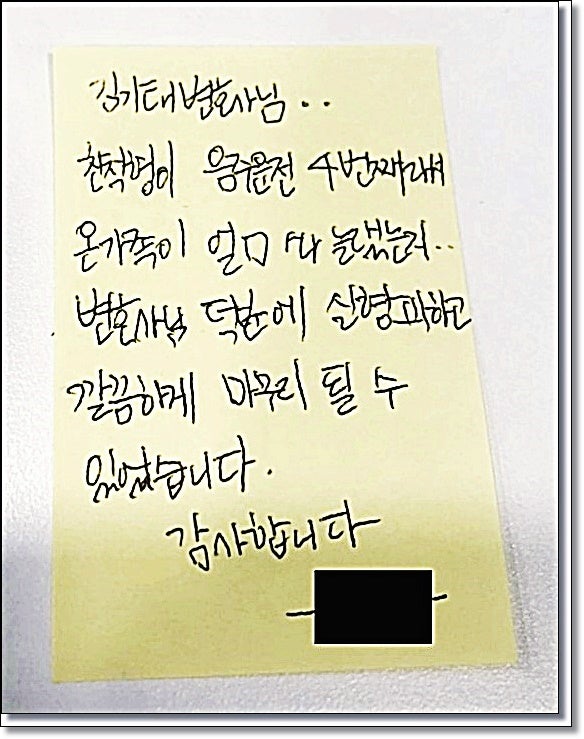 김기태변호사님..
음주운전 4번째라
온가족이 얼마나 놀랬는지..
변호사님 덕분에 실형피하고
깔끔하게 마무리 될 수
있었습니다.
감사합니다